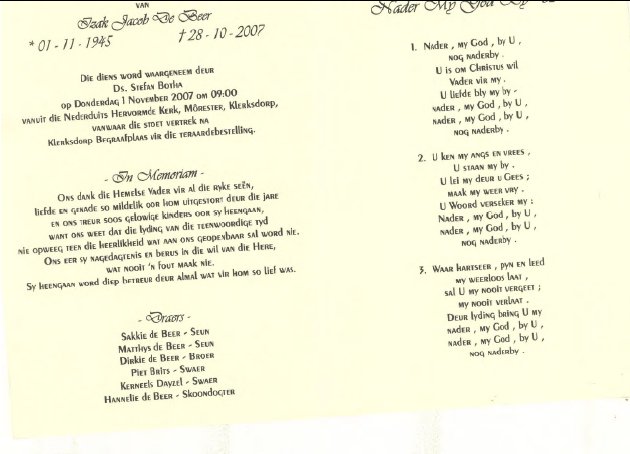 VAN
Izak Jacob De Beer
* 01 - 11 - 1945 † 28 - 10 - 2007
Die diens word waargeneem deur
Ds. Stefan Botha
op Donderdag 1 November 2007 om 09:00
vanuit die Nederduits Hervormde Kerk, Môrester, Klerksdorp,
vanwaar die stoet vertrek na
Klerksdorp Begraafplaas vir die teraardebestelling.
- In Memoriam -
Ons dank die Hemelse Vader vir al die ryke seën,
liefde en genade so mildelik oor hom uitgestort deur die jare
en ons treur soos gelowige kinders oor sy heengaan,
want ons weet dat die lyding van die teenwoordige tyd
nie opweeg teen die heerlikheid wat aan ons geopenbaar sal word nie.
Ons eer sy nagedagtenis en berus in die wil van die Here,
wat nooit 'n fout maak nie.
Sy heengaan word diep betreur deur almal wat vir hom so lief was.
- Draers -
Sakkie de Beer - Seun
Matthys de Beer - Seun
Dirkie de Beer - Broer
Piet Brits - Swaer
Kerneels Dayzel - Swaer
Hannelie de Beer - Skoondogter
Nader My God By
1. Nader , my God , by U ,
nog naderby .
U is om Christus wil
Vader vir my .
U liefde bly my by -
nader , my God , by U ,
nader , my God , by U ,
nog naderby .
2. U ken my angs en vrees ,
U staan my by .
U lei my deur u Gees ;
maak my weer vry .
U Woord verseker my :
Nader , my God , by U ,
nader , my God , by U ,
nog naderby .
3. Waar hartseer , pyn en leed
my weerloos laat ,
sal U my nooit vergeet ;
my nooit verlaat .
Deur lyding bring U my
nader , my God , by U ,
nader , my God , by U ,
nog naderby .